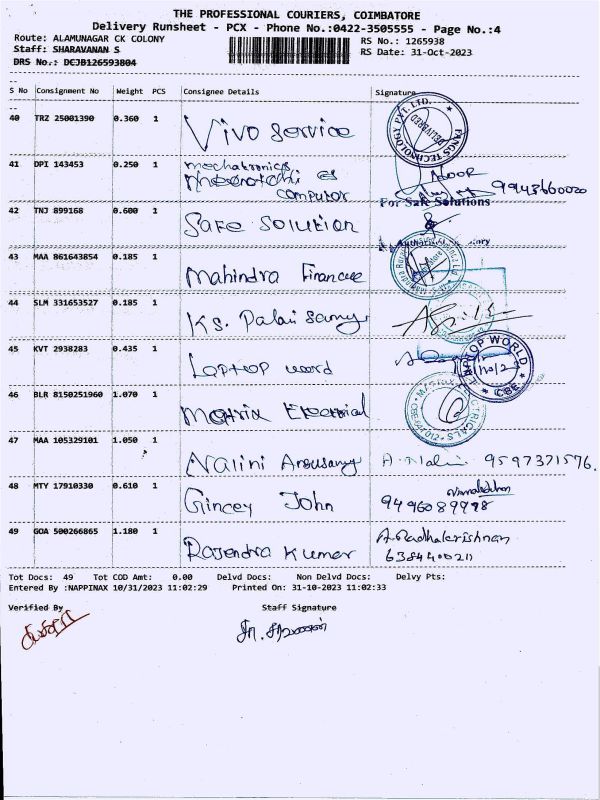 THE PROFESSIONAL COURIERS, COIMBATORE
Delivery Runsheet - PCX - Phone No.:0422-3505555 - Page No.:4
Route: ALAMUNAGAR CK COLONY RS No.: 1265938
Staff: SHARAVANAN S RS Date: 31-Oct-2023
DRS No.: DCJB126593804
S No Consignment No Weight PCS Consignee Details Signature
40 TRZ 25001390 0.360 1 Vivo Service
FANGS TECHNOLOGY PVT. LTD. DELIVERED
41 DPI 143453 0.250 1 mechatronics
computor 9943600020
For Safe Solutions
42 TNJ 899168 0.600 1 Safe Solution
43 MAA 861643854 0.185 1 Mahindra Finance
44 SLM 331653527 0.185 1 Ks. Palanisamy
45 KVT 2938283 0.435 1 Laptop word
LAPTOP WORLD CBE
46 BLR 8150251960 1.070 1 Matrix Electrical
47 MAA 105329101 1.050 1 Nalini Arousamy A. Nalini 9597371576.
48 MTY 17910330 0.610 1 Gincey John 9496089998
49 GOA 500266865 1.180 1 Rajendra Kumar A. Radhakrishnan
6384400211
Tot Docs: 49 Tot COD Amt: 0.00 Delvd Docs: Non Delvd Docs: Delvy Pts:
Entered By :NAPPINAX 10/31/2023 11:02:29 Printed On: 31-10-2023 11:02:33
Verified By Staff Signature